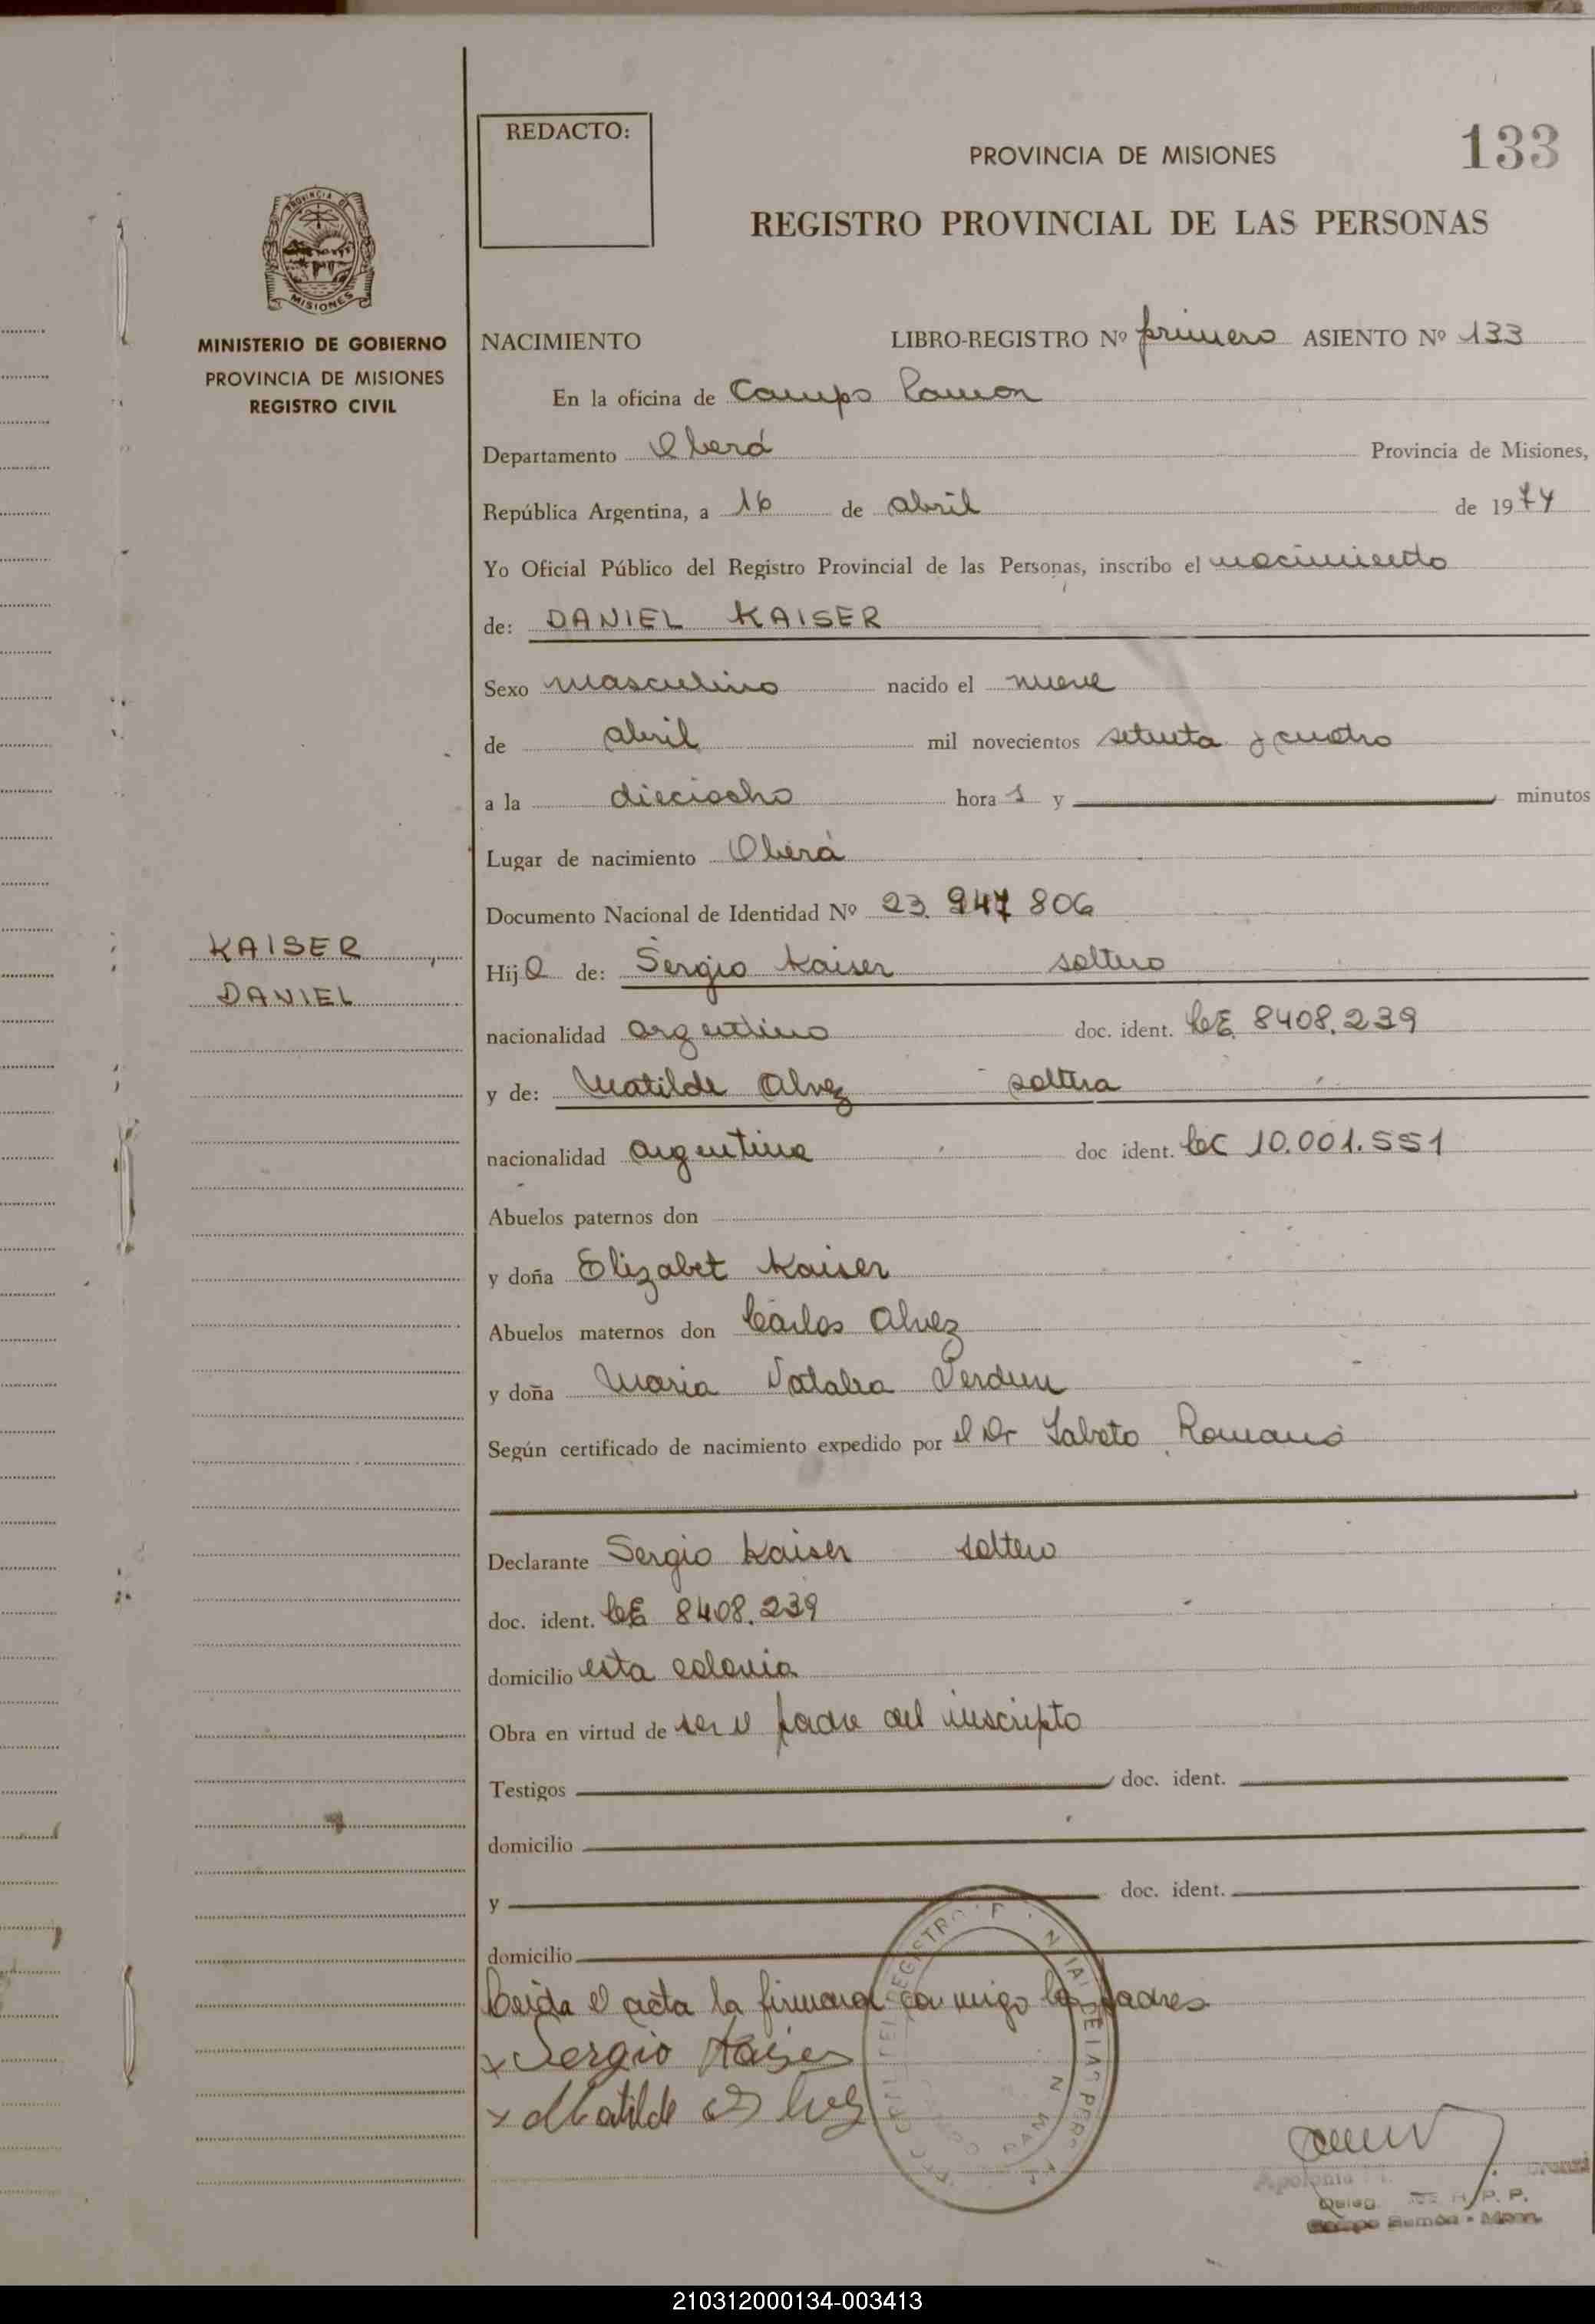 REDACTO:
PROVINCIA DE MISIONES
133
REGISTRO PROVINCIAL DE LAS PERSONAS
PROVINCIA DE
MISIONES
MINISTERIO DE GOBIERNO
PROVINCIA DE MISIONES
REGISTRO CIVIL
KAISER
DANIEL
NACIMIENTO LIBRO-REGISTRO Nº primero ASIENTO Nº 133
En la oficina de Campo Ramon
Departamento Oberá Provincia de Misiones,
República Argentina, a 16 de abril de 1974
Yo Oficial Público del Registro Provincial de las Personas, inscribo el nacimiento
de: DANIEL KAISER
Sexo masculino nacido el nueve
de abril mil novecientos setenta y cuatro
a la dieciocho hora s y minutos
Lugar de nacimiento Oberá
Documento Nacional de Identidad Nº 23.947806
Hijo de: Sergio Kaiser soltero
nacionalidad argentino doc. ident. LE 8408.239
y de: Matilde Alvez soltera
nacionalidad argentina doc ident. LC 10.001.551
Abuelos paternos don
y doña Elizabet Kaiser
Abuelos maternos don Carlos Alvez
y doña Maria Verdun
Según certificado de nacimiento expedido por el Dr Romano
Declarante Sergio Kaiser soltero
doc. ident. LE 8408.239
domicilio esta colonia
Obra en virtud de ser el padre del inscripto
Testigos doc. ident.
domicilio
y doc. ident.
domicilio
Leida el acta la firman conmigo los padres
x Sergio Kaiser
x Matilde Alvez
Apolonia
Deleg. R. P. P.
Campo Ramón - Mnes.
210312000134-003413